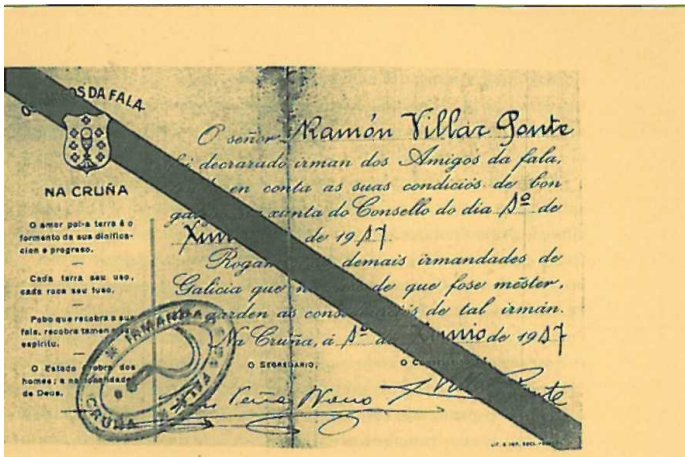 DA FALA
NA CRUÑA
O amor pol-a terra é o
formento da sua dinifica-
cion e progreso.
Cada terra seu uso,
cada roca seu fuso.
Pobo que recobra a sua
fala, recobra tamen o seu
espiritu.
O Estado é obra dos
homes; a nacionalidade
de Deus.
O señor Ramón Villar Ponte
decrarado irman dos Amigos da fala,
en conta as suas condiciós de bon
xunta do Consello do dia 1º de
de 1917
demais irmandades de
Galicia que de que fose méster,
garden as de tal irmán.
Na Cruña, á 1º de Xunio de 1917
O SEGREDARIO,
IRMANDADE
CRUÑA
Peña Novo
Ponte